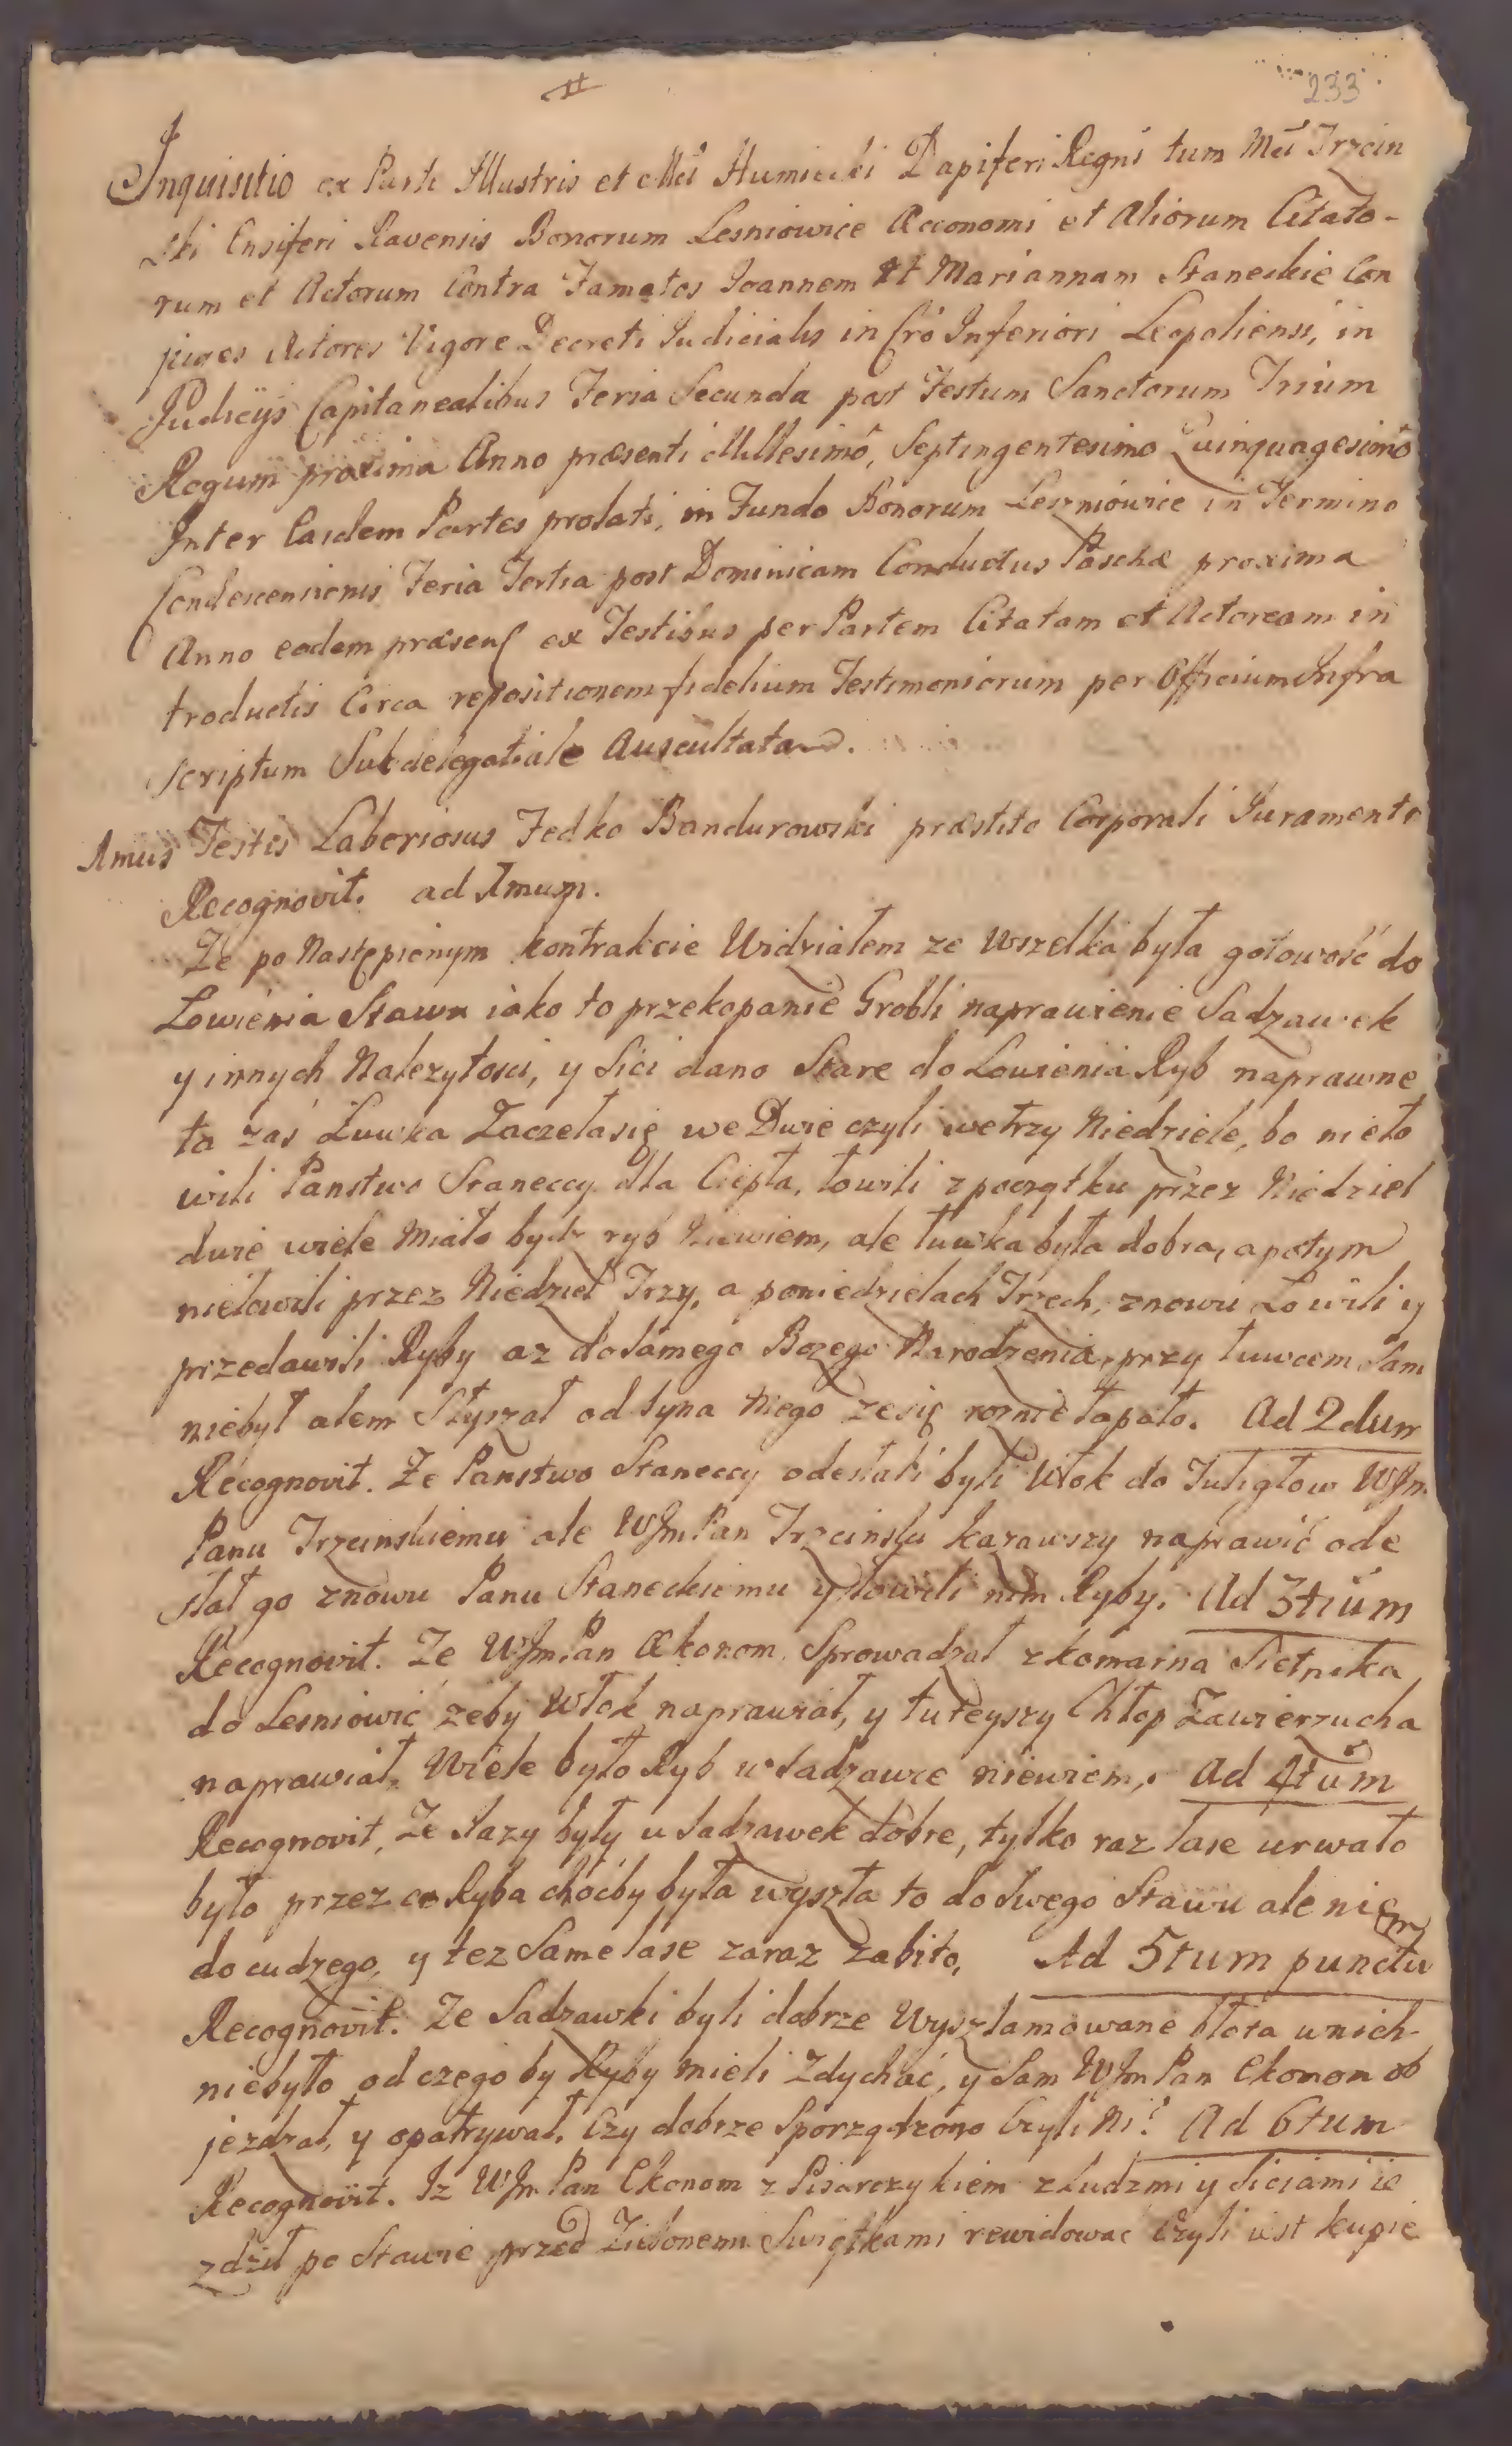 233
Inquisitio ex Parte Illustris et Mci Humiecki Dapiferi Regni tum Mci Trzcin
ski Ensiferi Ravensis Bonorum Lesniowice Œconomi et Aliorum Citato-
rum et Actorum Contra Famatos Joannem et Mariannam Staneckie Con
juges Actores Vigore Decreti Judicialis in Cró Inferiori Leopoliensi, in
Judicÿs Capitanealibus Feria Secunda post Festum Sanctorum Trium
Regum proxima Anno præsenti Millesimó, Septingentesimo Quinquagesimó
Inter Easdem Partes prolati, in Fundo Bonorum Leszniowice in Termino
Condescensionis Feria Tertia post Dominicam Conductus Paschæ proxima
Anno eodem præsenſ ex Testibus per Partem Citatam et Actoream in
troductis Circa repositionem fidelium Testimoniorum per Officium Infra
scriptum Subdelegatiale Auscultata.
1mus Testis Laboriosus Fedko Bandurowski præstito Corporali Juramento
Recognovit. ad 1mum.
Ze po Następionym kontrakcie Widziałem ze Wszelka była gotowość do
Łowienia Stawu iako to przekopanie Grobli naprawienie Sadzawek
y innych Nalezytosci, y Sici dano Stare do Łowienia Ryb naprawne
ta zaś Łuwka Zaczeła się we Dwie czyli wetrzy Niedziele, bo nieło
wili Panstwo Staneccy dla Ciepła, łowili z początku przez Niedziel
dwie wiele Miało bydz ryb niewiem, ale łuwka była dobra, apotym
niełowili przez Niedziel Trzy, a poniedzielach Trzech, znowu Łowili y
przedawili Ryby az dosamego Bozego Narodzenia, przy łuwcem Sam
niebył alem Słyszał od Syna Mego zesię roznie łapało. Ad 2dum
Recognovit. Ze Panstwo Staneccy odesłali byli Włok do Tuligłow WJm
Panu Trzcinskiemu ale WJm Pan Trzcinski kazawszy naprawić ode
słał go znowu Panu Staneckiemu y łowili nim Ryby. Ad 3tium
Recognovit. Ze WJm Pan Œkonom Sprowadzał zkomarna Sietnika
do Lesniowic zeby Włok naprawiał, y tuteyszy Chłop Zawierzucha
naprawiał. Wiele było Ryb w Sadzawce niewiem. Ad 4tum
Recognovit, Ze Łazy były u Sadzawek dobre, tylko raz łase urwało
było przez co Ryba choćby była wyszła to do Swego Stawu ale nie
do cudzego, y tez Same łase zaraz zabito, Ad 5tum punctum
Recognovit. Ze Sadzawki byli dobrze Wyszlamowane błota wnich
niebyło od czego by Ryby mieli Zdychać, y Sam WJm Pan Ekonom ob
jezdzał, y opatrywał. Czy dobrze Sporządzono Czyli Ni? Ad 6tum
Recognovit. Iz WJm Pan Ekonom z Pisarczykiem z Ludzmi y Siciami ie
zdził po Stawie przed Zielonemi Swiątkami rewidować Czyli iest kupie